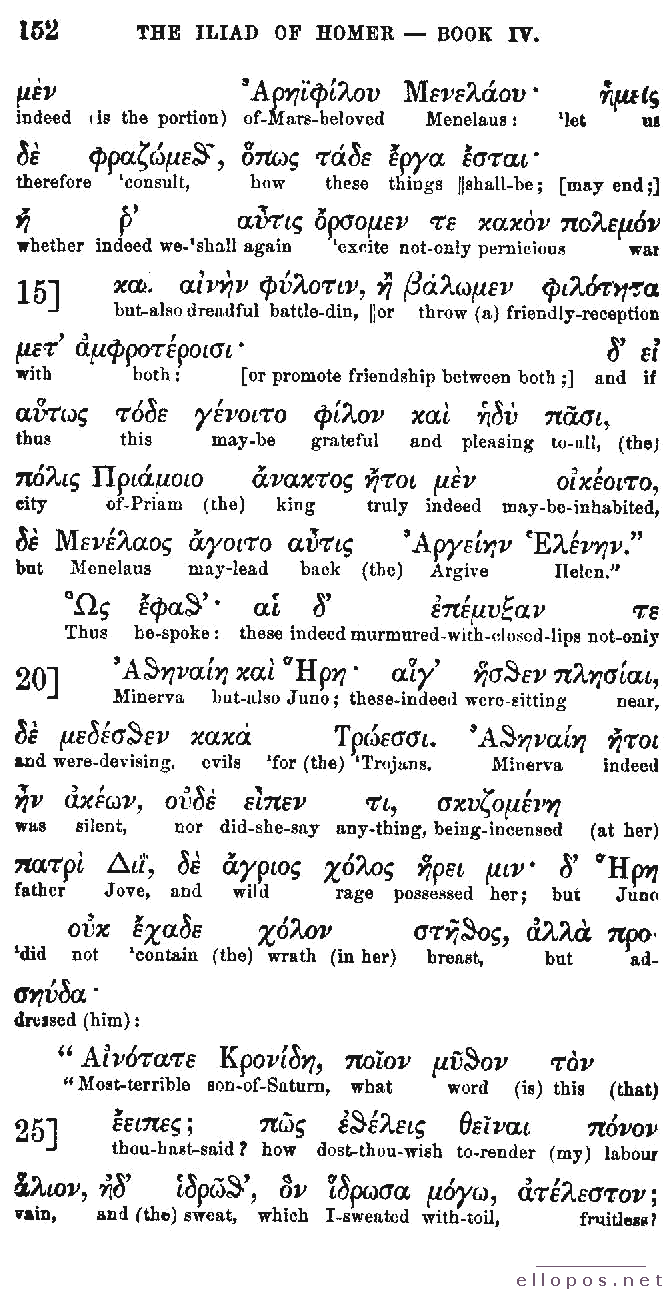 152 THE ILIAD OF HOMER — BOOK IV.
μὲν Ἀρηϊφίλου Μενελάου· ἡμεῖς
indeed (is the portion) of-Mars-beloved Menelaus: 'let us
δὲ φραζώμεϑ', ὅπως τάδε ἔργα ἔσται·
therefore 'consult, how these things ||shall-be; [may end;]
ἤ ῥ' αὖτις ὄρσομεν τε κακὸν πολεμόν
whether indeed we-'shall again 'excite not-only pernicious war
15] και αἰνὴν φύλοτιν, ἢ βάλωμεν φιλότητα
but-also dreadful battle-din, ||or throw (a) friendly-reception
μετ' ἀμφροτέροισι· δ' εἰ
with both: [or promote friendship between both;] and if
αὔτως τόδε γένοιτο φίλον καὶ ἡδὺ πᾶσι,
thus this may-be grateful and pleasing to-all, (the)
πόλις Πριάμοιο ἄνακτος ἤτοι μὲν οἰκέοιτο,
city of-Priam (the) king truly indeed may-be-inhabited,
δὲ Μενέλαος ἄγοιτο αὖτις Ἀργείην Ἑλένην.”
but Menelaus may-lead back (the) Argive Helen.”
Ὣς ἔφαϑ'· αἱ δ' ἐπέμυξαν τε
Thus he-spoke: these indeed murmured-with-closed-lips not-only
20] Ἀϑηναίη καὶ Ἥρη· αἵγ' ἥσϑεν πλησίαι,
Minerva but-also Juno; these-indeed were-sitting near,
δὲ μεδέσϑεν κακὰ Τρώεσσι. Ἀϑηναίη ἤτοι
and were-devising, evils 'for (the) 'Trojans. Minerva indeed
ἦν ἀκέων, οὐδὲ εἶπεν τι, σκυζομένη
was silent, nor did-she-say any-thing, being-incensed (at her)
πατρὶ Διῒ, δὲ ἄγριος χόλος ᾕρει μιν· δ' Ἥρη
father Jove, and wild rage possessed her; but Juno
οὐκ ἔχαδε χόλον στῆϑος, ἀλλὰ προ-
'did not 'contain (the) wrath (in her) breast, but ad-
σηύδα·
dressed (him):
“Αἰνότατε Κρονίδη, ποῖον μῦϑον τὸν
“Most-terrible son-of-Saturn, what word (is) this (that)
25] ἔειπες; πῶς ἐϑέλεις θεῖναι πόνον
thou-hast-said? how dost-thou-wish to-render (my) labour
ἅλιον, ἠδ' ἱδρῶϑ', ὃν ἵδρωσα μόγω, ἀτέλεστον;
vain, and (the) sweat, which I-sweated with-toil, fruitless?
ellopos.net